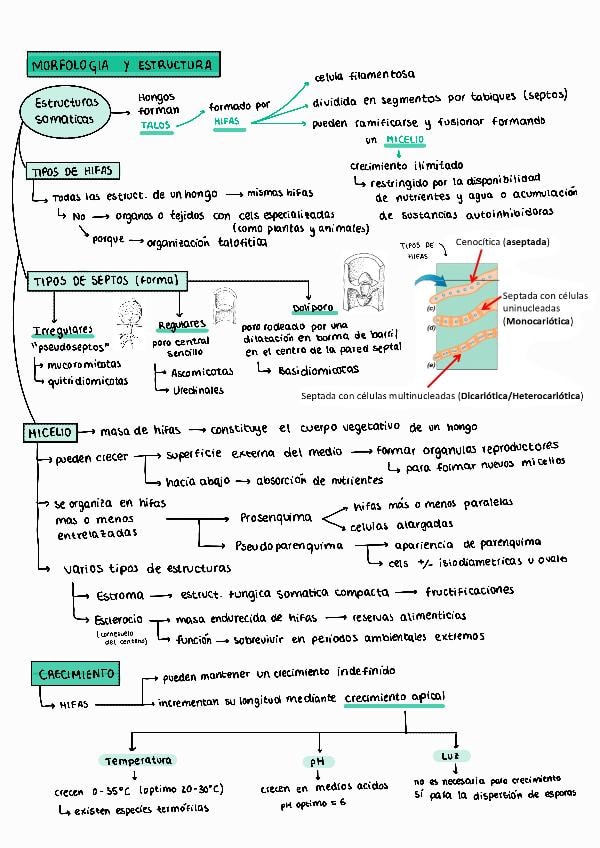 MORFOLOGIA Y ESTRUCTURA
Estructuras
somaticas
Hongos
forman
TALOS
formado por
HIFAS
celula filamentosa
dividida en segmentos por tabiques (septos)
pueden ramificarse y fusionar formando
un MICELIO
crecimiento ilimitado
restringido por la disponibilidad
de nutrientes y agua o acumulación
de sustancias autoinhibidoras
TIPOS DE HIFAS
Todas las estruct. de un hongo → mismas hifas
No → organos o tejidos con cels especializadas
(como plantas y animales)
porque → organización talofitica
TIPOS DE SEPTOS (forma)
Irregulares
"pseudoseptos"
mucoromicotas
quitridiomicotas
Regulares
poro central
sencillo
Ascomicotas
Uredinales
Doliporo
poro rodeado por una
dilatación en borma de barril
en el centro de la pared septal
Basidiomicotas
TIPOS DE
HIFAS
Cenocítica (aseptada)
Septada con células
uninucleadas
(Monocariótica)
(c)
(d)
(e)
Septada con células multinucleadas (Dicariótica/Heterocariótica)
MICELIO → masa de hifas → constituye el cuerpo vegetativo de un hongo
pueden crecer
superficie externa del medio → formar organulas reproductores
para formar nuevos micelios
hacia abajo → absorción de nutrientes
se organiza en hifas
mas o menos
entrelazadas
Prosenquima
hifas más o menos paralelas
celulas alargadas
Pseudoparenquima
apariencia de parenquima
cels +/- isiodiametricas u ovales
varios tipos de estructuras
Estroma → estruct. fungica somatica compacta → fructificaciones
Esclerocio
(cornezuelo
del centeno)
masa endurecida de hifas → reservas alimenticias
función → sobrevivir en periodos ambientales extremos
CRECIMIENTO
HIFAS
pueden mantener un crecimiento indefinido
incrementan su longitud mediante crecimiento apical
Temperatura
crecen 0-35°C (optimo 20-30°C)
existen especies termófilas
pH
crecen en medios acidos
pH optimo = 6
Luz
no es necesaria para crecimiento
sí para la dispersión de esporas